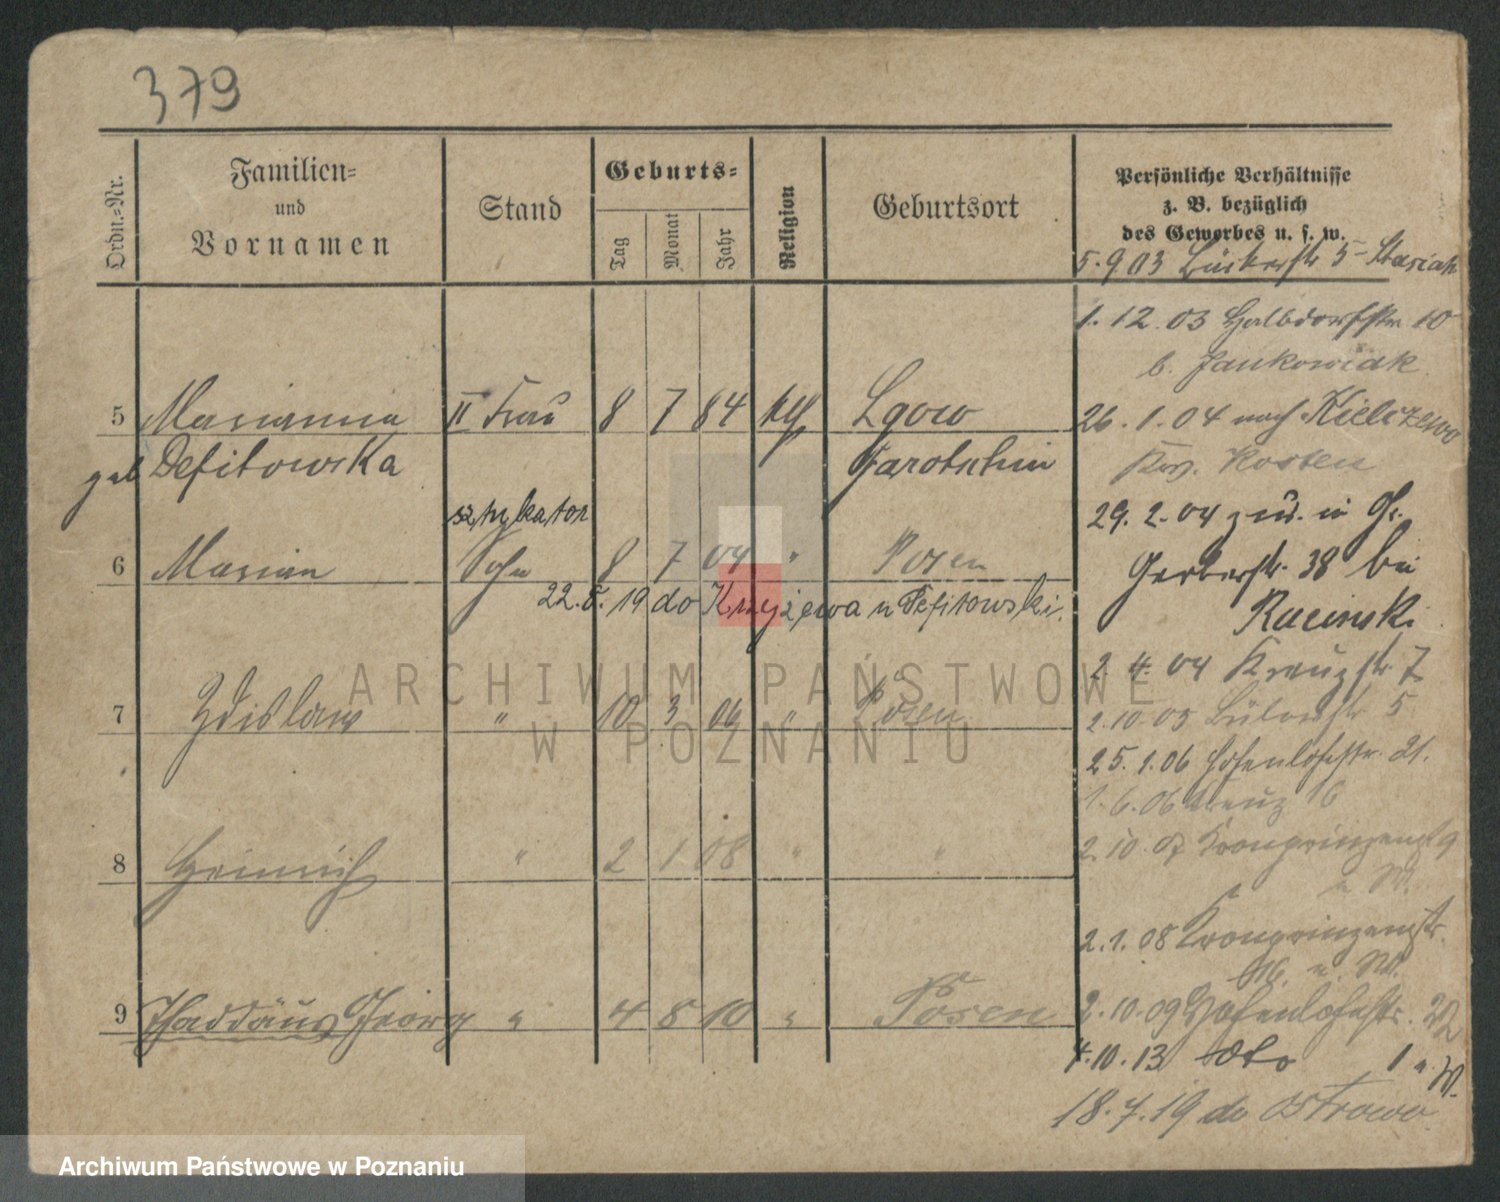 379
Ordn.-Nr.
Familien-
und
Vornamen
Stand
Geburts-
Tag
Monat
Jahr
Religion
Geburtsort
Persönliche Verhältnisse
z. B. bezüglich
des Gewerbes u. s. w.
5.9.03 5 Stasiak
1.12.03 Halbdorfstr. 10
b. Jankowiak
5 Marianna II Frau 8 7 84 kth Lgow
26.1.04 nach Kielczewo
geb Defitowska Jarotschin
Krs. Kosten
29.2.04 zur. in Gr.
6 Marian Sohn 8 7 04 " Posen
Gerberstr. 38 bei
22. 19 do Krzyżewa u Defitowski.
Racinski
2.4.04 Kreuzstr. 7
7 Zdislaw " 10 3 06 " Posen
2.10.05 Bülowstr. 5
25.1.06 Hohenlohestr. 21.
1.6.06 Kreuz 16
8 Heinrich " 2 1 08 " "
2.10.07 Kronprinzenstr 9
2.1.08 Kronprinzenstr.
9 Thaddäus Georg " 4 8 10 " Posen
2.10.09 Hohenlohestr.
4.10.13 dto 1
18.7.19 do Ostrowo
ARCHIWUM PAŃSTWOWE
W POZNANIU
Archiwum Państwowe w Poznaniu